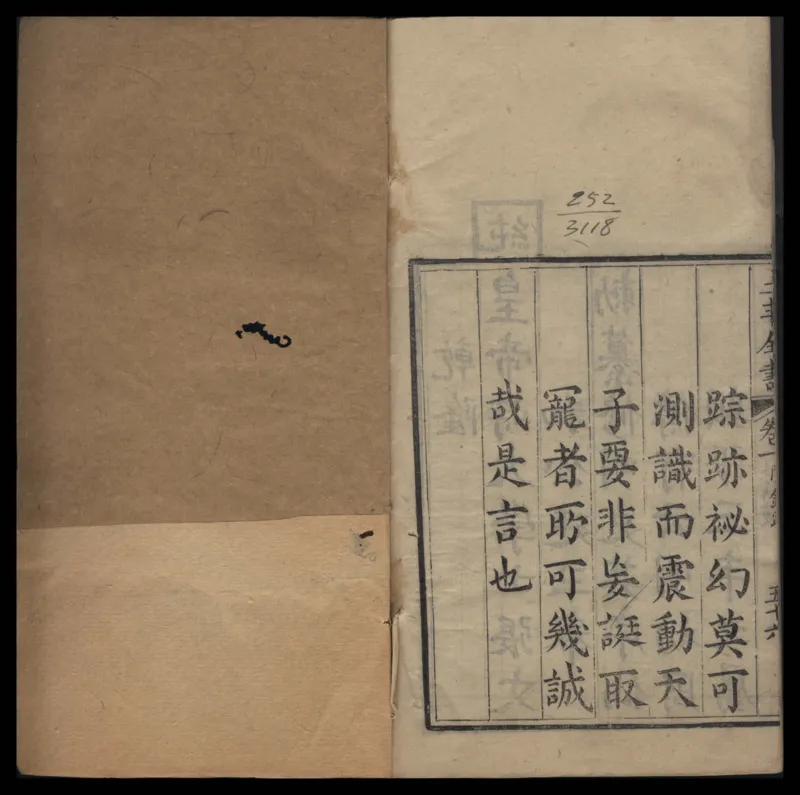 252
3118
三丰全書
卷一
五十六
踪跡祕幻莫可
測識而震動天
子要非妄誕取
寵者所可幾誠
哉是言也